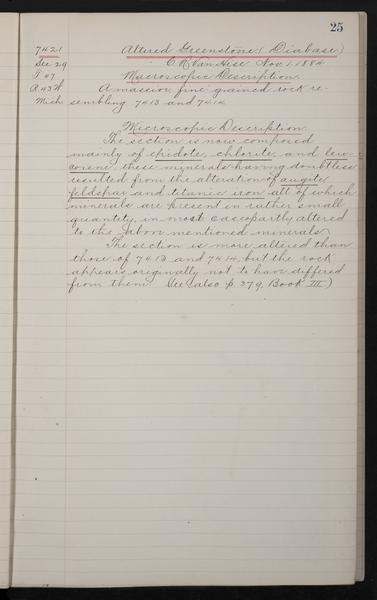 25
7421 Altered Greenstone (Diabase)
Sec 29 C. R. Van Hise Nov. 1. 1884
T 47 Macroscopic Description.
R 43 W A massive, fine grained rock re-
Mich. sembling 7413 and 7414.
Microscopic Description.
The section is now composed
mainly of epidote, chlorite, and leu-
coxene, these minerals having doubtless
resulted from the alteration of augite,
feldspar and titanic iron all of which
minerals are present in rather small
quantity, in most cases partly altered
to the above mentioned minerals.
The section is more altered than
those of 7413 and 7414, but the rock
appears originally not to have differed
from them. (See also p 379, Book III)